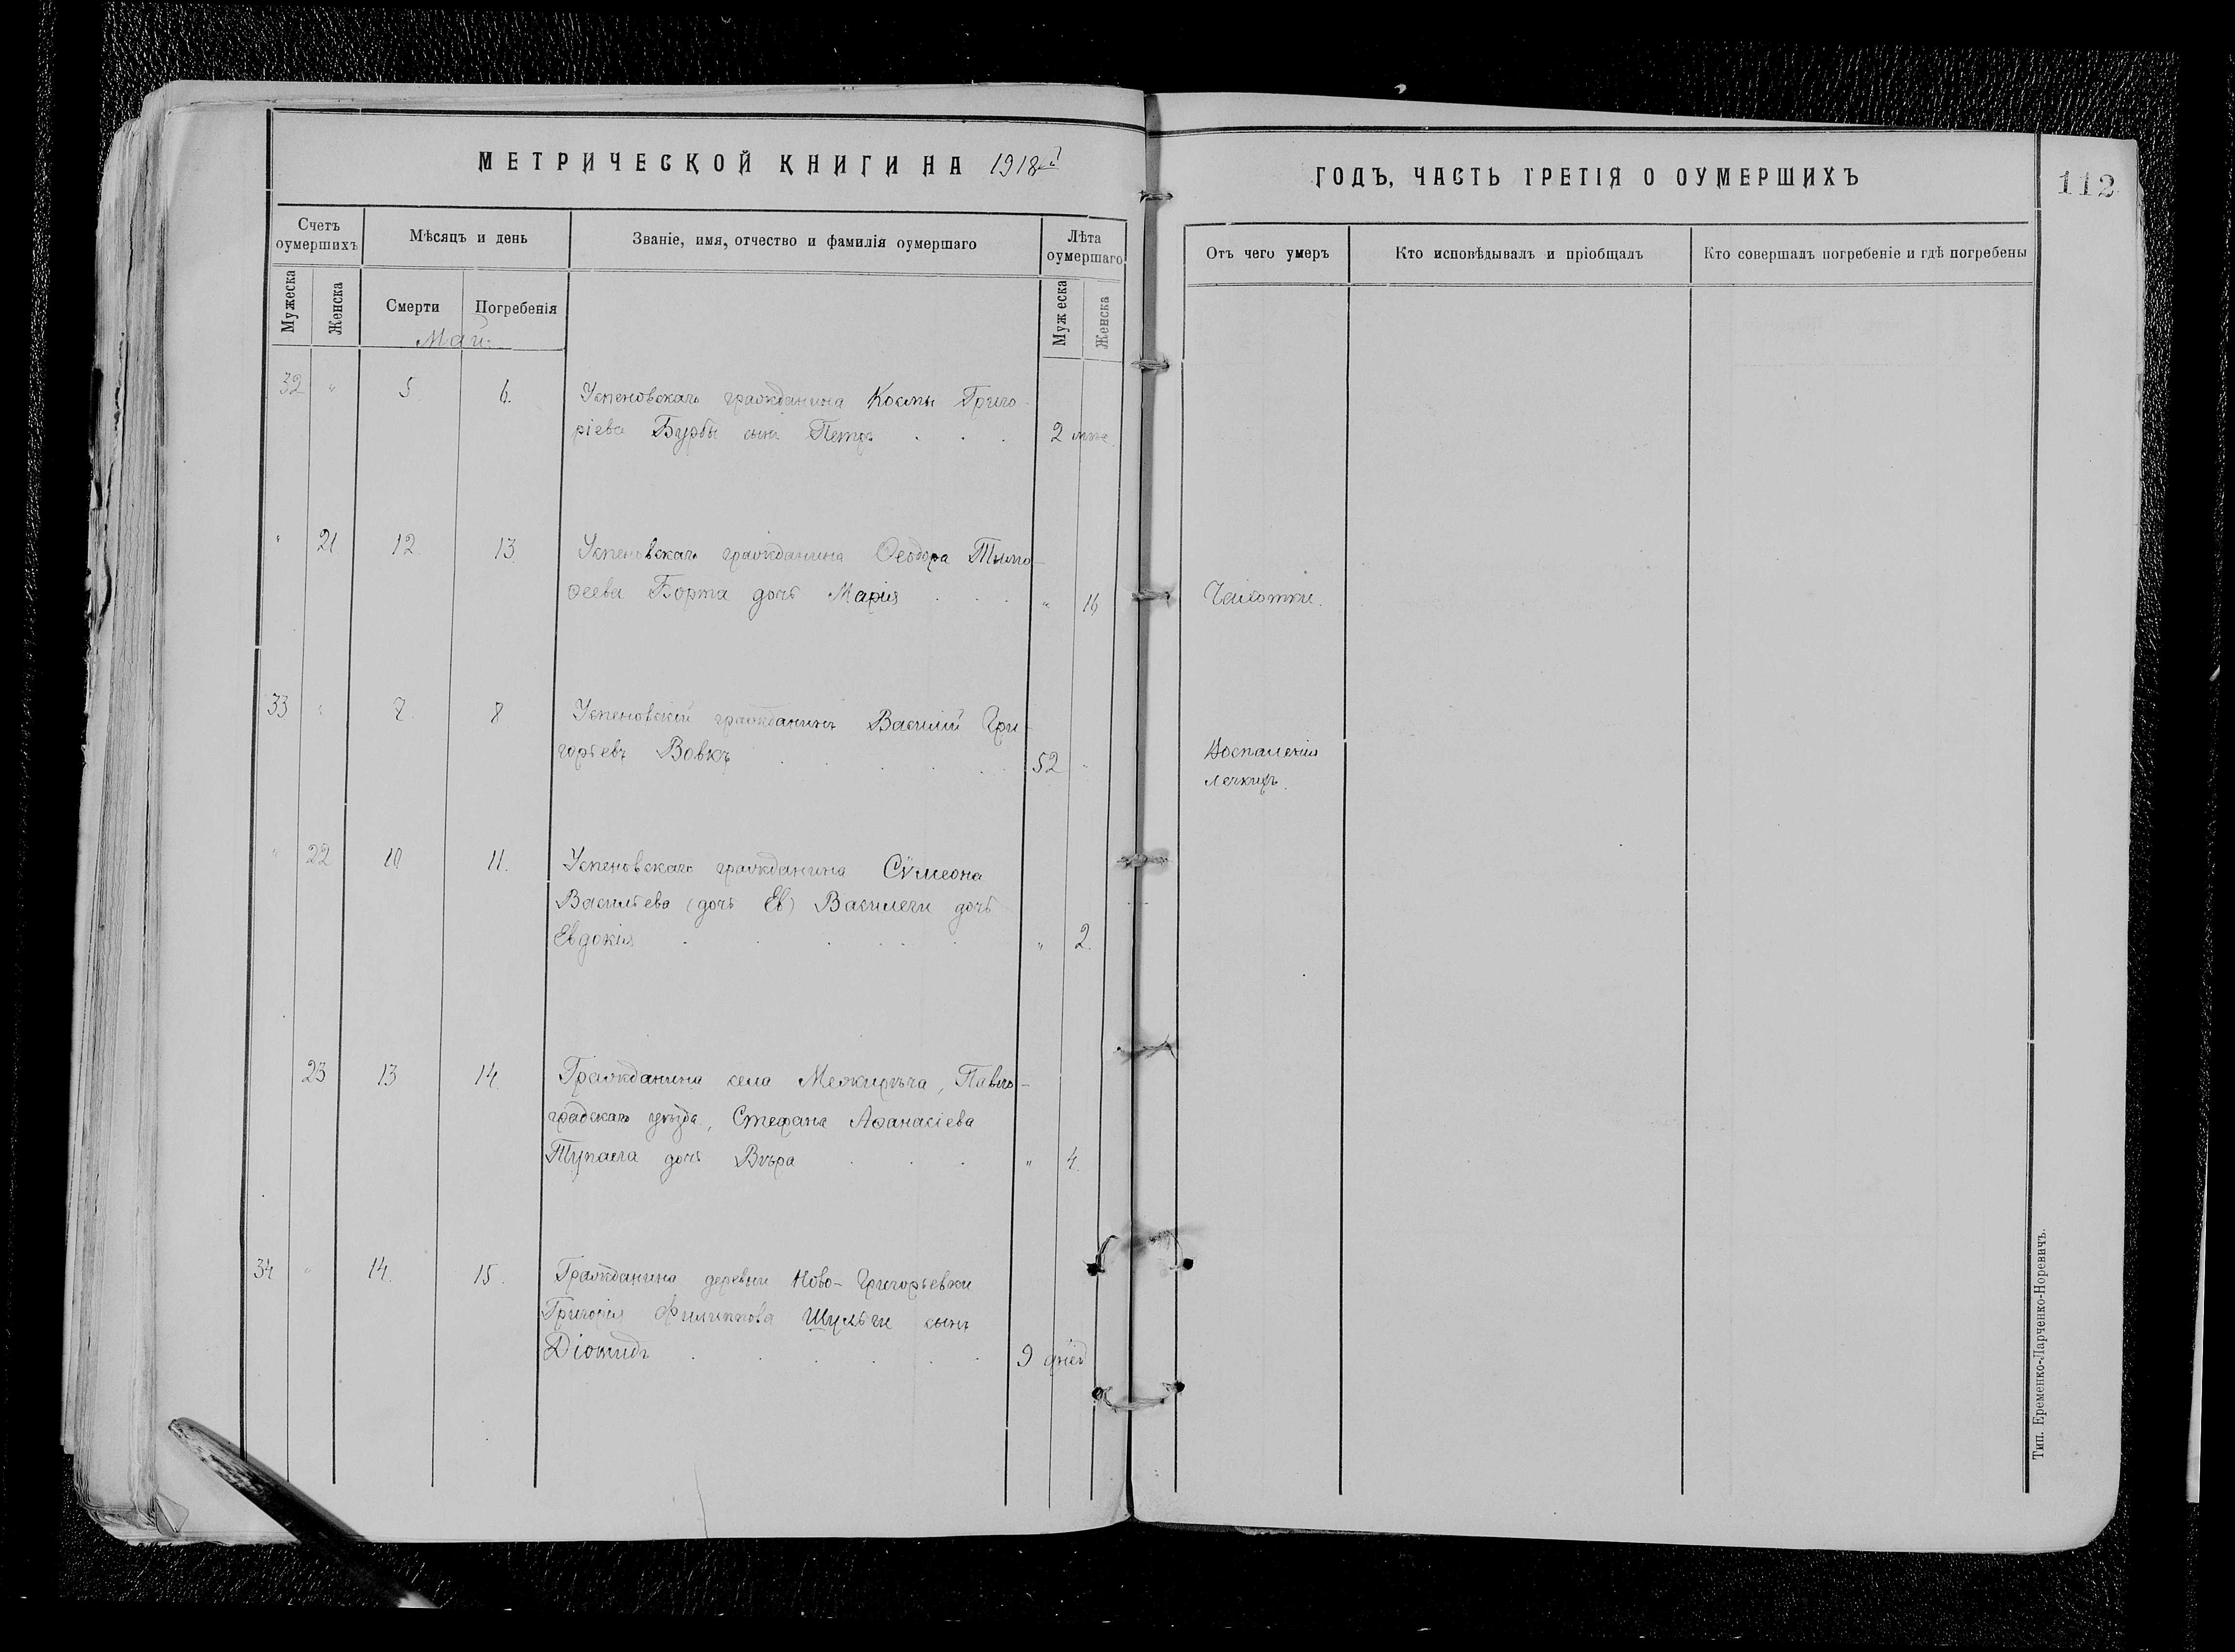 МЕТРИЧЕСКОЙ КНИГИ НА 1918й
Счетъ оумершихъ
Мѣсяцъ и день
Званіе, имя, отчество и фамилія оумершаго
Лѣта оумершаго
Мужеска
Женска
Смерти
Погребенія
Мужеска
Женска
Май
32 " 5 6. Успеновскаго гражданина Космы Григо-
ріева Бурбы сынъ Петръ . . . 2 мѣс.
" 21 12 13 Успеновскаго гражданина Ѳеодора Тимо-
ѳеева Борта дочь Марія . . . " 16
33 " 7 8 Успеновскій гражданинъ Василій Гри-
горьевъ Вовкъ . . . . . 52 "
" 22 10 11. Успеновскаго гражданина Сѵмеона
Васильева (дочь Ев) Василеги дочь
Евдокія . . . . . . " 2.
23 13 14 Гражданина села Межирѣча, Павло-
градскаго уѣзда, Стефана Аѳанасіева
Тупаега дочь Вѣра . . . " 4.
34 " 14. 15. Гражданина деревни Ново-Григорьевки
Григорія Филиппова Шульги сынъ
Діомидъ . . . . . 9 дней
ГОДЪ, ЧАСТЬ ТРЕТІЯ О ОУМЕРШИХЪ
112
Отъ чего умеръ
Кто исповѣдывалъ и пріобщалъ
Кто совершалъ погребеніе и гдѣ погребены
Чахотки.
Воспаленія
легкихъ.
Тип. Еременко-Ларченко-Норевичъ.